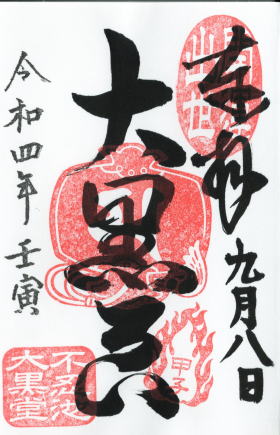 奉拝
九月八日
大黒天
甲子
令和四年 壬寅
不忍池
大黒堂